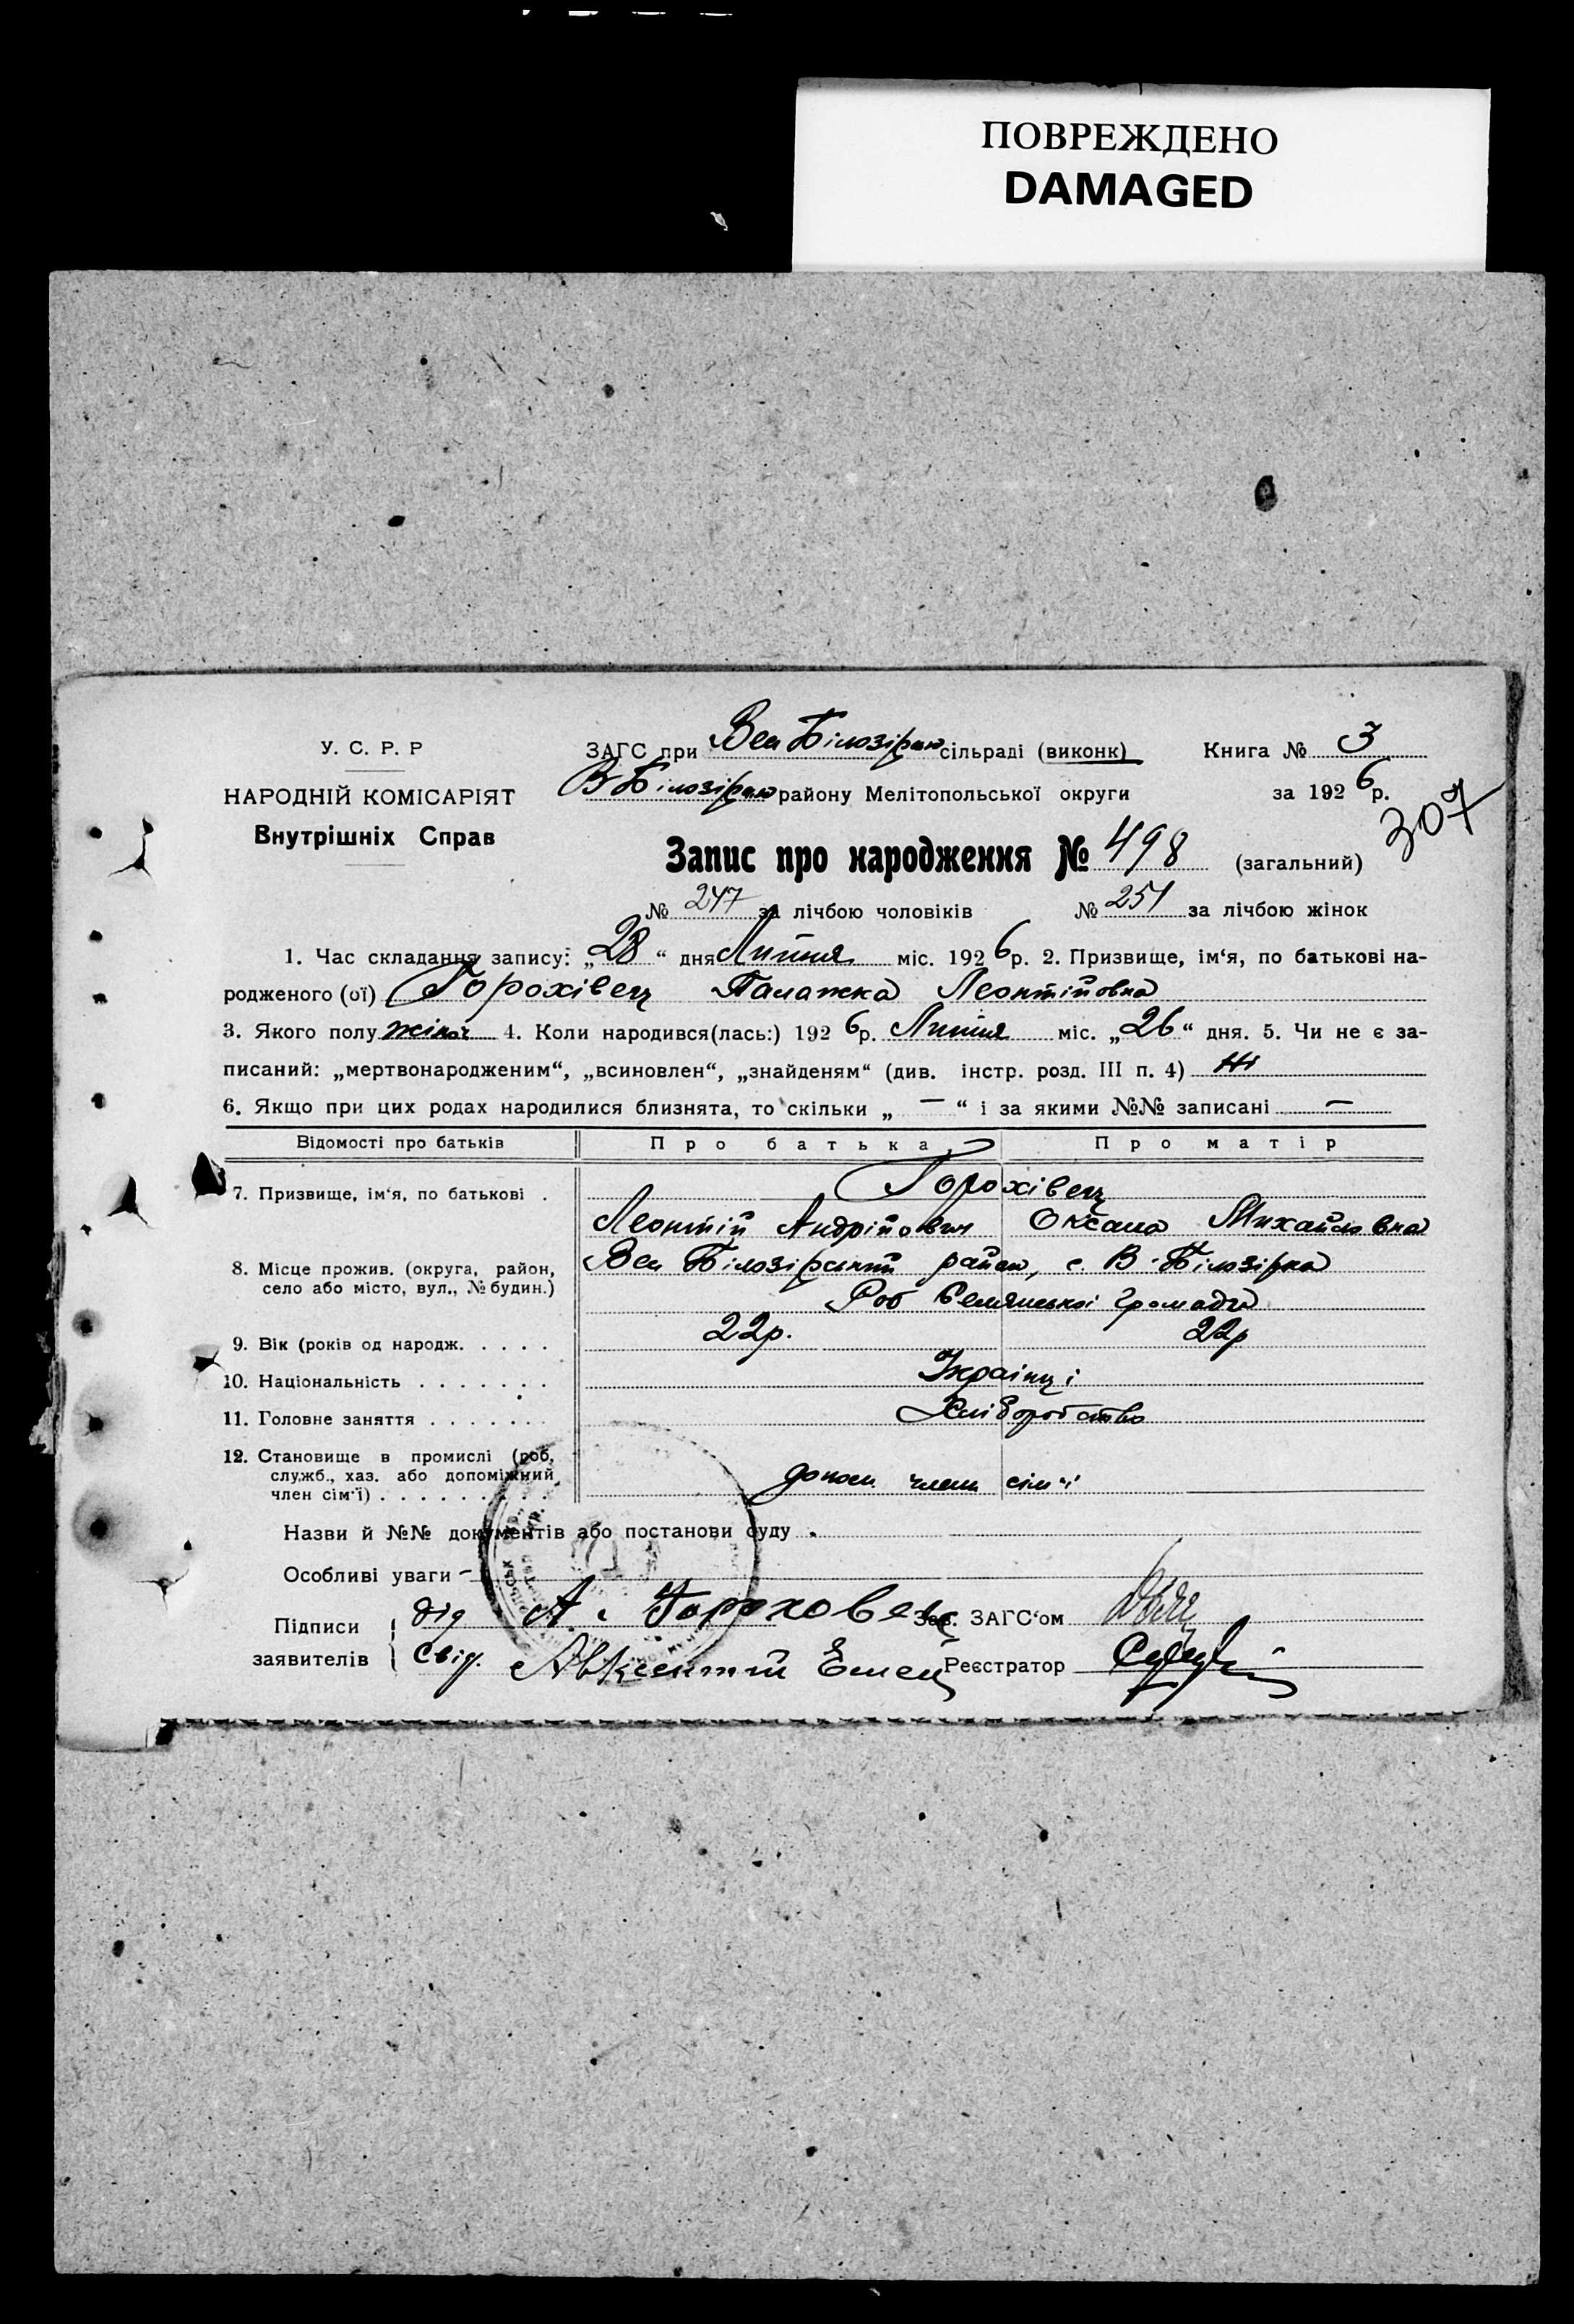 ПОВРЕЖДЕНО
DAMAGED
У. С. Р. Р
НАРОДНІЙ КОМІСАРІЯТ
Внутрішніх Справ
ЗАГС при Вел Білозірськ сільраді (виконк) Книга № 3
В Білозірськ району Мелітопольської округи за 1926 р.
307
Запис про народження № 498 (загальний)
№ 247 за лічбою чоловіків № 251 за лічбою жінок
1. Час складання запису: „28“ дня Липня міс. 1926 р. 2. Призвище, ім‘я, по батькові на-
родженого (ої) Горохівец Палажка Леонтійовна
3. Якого полу жіноч 4. Коли народився(лась:) 1926 р. Липня міс. „26“ дня. 5. Чи не є за-
писаний: „мертвонародженим“, „всиновлен“, „знайденям“ (див. інстр. розд. III п. 4) Ні
6. Якщо при цих родах народилися близнята, то скільки „ — “ і за якими №№ записані —
Відомості про батьків Про батька Про матір
7. Призвище, ім‘я, по батькові . Горохівец
Леонтій Андрійович Оксана Михайловна
8. Місце прожив. (округа, район, село або місто, вул., № будин.) Вел Білозірський район, с. В-Білозірка
Громади
9. Вік (років од народж. . . . . 22р. 22р
10. Національність . . . . . . . Українці
11. Головне заняття . . . . . . . Хліборобство
12. Становище в промислі (роб.
служб., хаз. або допоміжний
член сім‘ї) . . . . . . . . . допом. член сім‘ї
Назви й №№ документів або постанови суду .
Особливі уваги -
Підписи дід А. Гороховец Зав. ЗАГС‘ом
заявителів Свід. Авксентий Емец Реєстратор